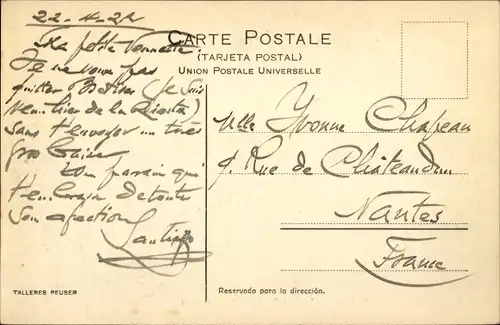 22-4-22
CARTE POSTALE
(TARJETA POSTAL)
UNION POSTALE UNIVERSELLE
Ma petite Vonnette
Je ne veux pas
quitter (Je suis
de la
sans t'envoyer un très
gros baiser
Ton parrain qui
t'embrasse de toute
son afection
Santiago
Mlle Yvonne Chapeau
9. Rue de Châteaudun
Nantes
France
TALLERES PEUSER
Reservado para la dirección.